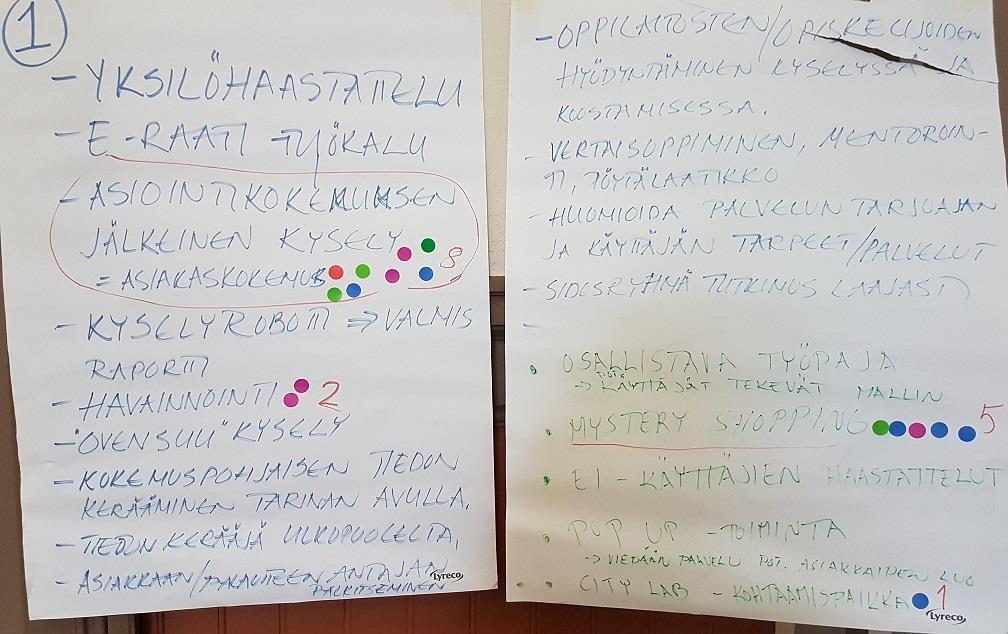 1
- YKSILÖHAASTATTELU
- E-RAATI -TYÖKALU
- ASIOINTIKOKEMUKSEN
JÄLKEINEN KYSELY
= ASIAKASKOKEMUS 8
- KYSELYROBOTTI => VALMIS
RAPORTTI
- HAVAINNOINTI 2
- "OVENSUU" KYSELY
- KOKEMUSPOHJAISEN TIEDON
KERÄÄMINEN TARINAN AVULLA.
- TIEDON KERÄÄJÄ ULKOPUOLELTA.
- ASIAKKAAN/PALAUTTEEN ANTAJAN
PALKITSEMINEN
Lyreco
- OPPILAITOSTEN/OPISKELIJOIDEN
HYÖDYNTÄMINEN KYSELYSSÄ JA
KOOSTAMISESSA.
- VERTAISOPPIMINEN, MENTOROIN-
TI, PÖYTÄLAATIKKO
- HUOMIOIDA PALVELUN TARJOAJAN
JA KÄYTTÄJÄN TARPEET/PALVELUT
- SIDOSRYHMÄ TUTKIMUS LAAJASTI
-
• OSALLISTAVA TYÖPAJA
-> KÄYTTÄJÄT TEKEVÄT MALLIN
• MYSTERY SHOPPING 5
• EI-KÄYTTÄJIEN HAASTATTELUT
• POP UP -TOIMINTA
-> VIEDÄÄN PALVELU POT. ASIAKKAIDEN LUO
• CITY LAB - KOHTAAMISPAIKKA 1
Lyreco